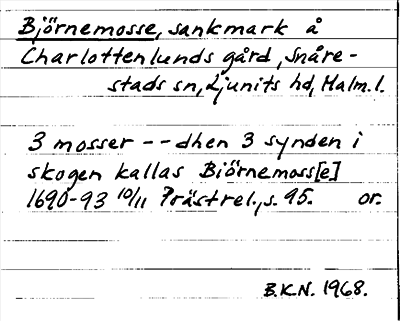 Björnemosse, sankmark å
Charlottenlunds gård, Snåre-
stads sn, Ljunits hd, Malm. l.
3 mosser -- dhen 3 synden i
skogen kallas Biörnemoss[e]
1690-93 10/11 Prästrel., s. 95. or.
B.K.N. 1968.